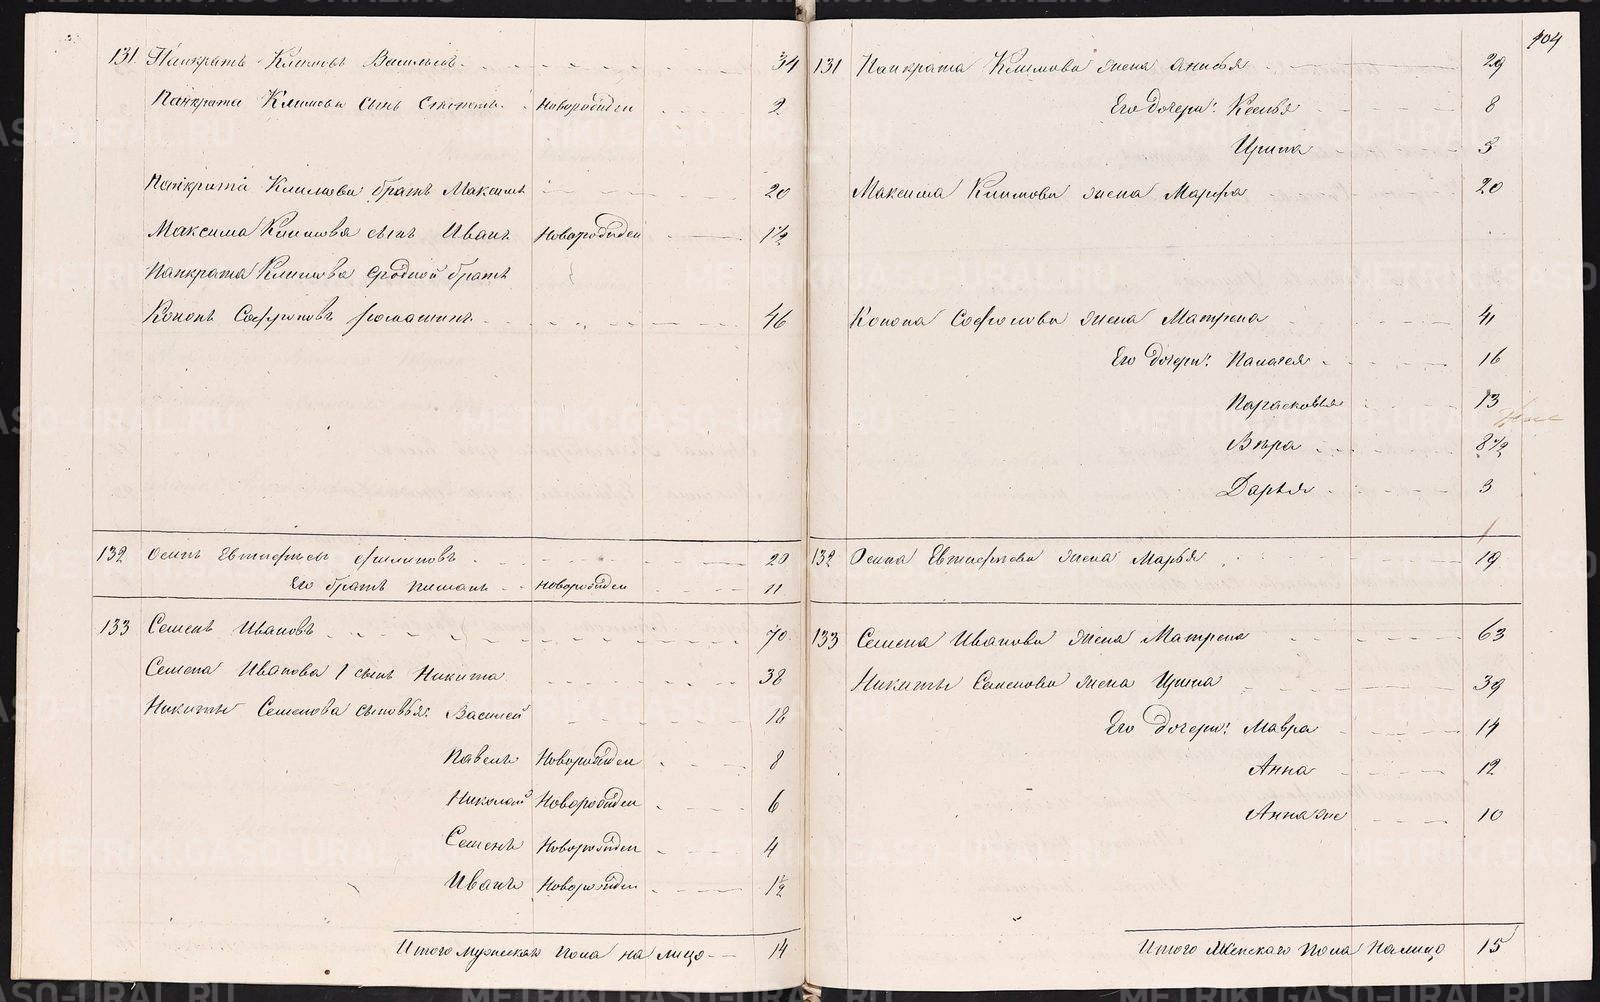 104
131 Панкратъ Климовъ Васильевъ 34
Панкрата Климова сынъ Степанъ Новорожден 2
Панкрата Климова братъ Максимъ 20
Максима Климовя сынъ Иванъ Новорожден 1½
Панкрата Климова сродной братъ
Кононъ Софроновъ Ромашинъ 46
132 Осипъ Евтиефьевъ Филиповъ 20
Его братъ Пиманъ Новорожден 11
133 Семенъ Ивановъ 70
Семена Иванова 1 сынъ Никита 38
Никиты Семенова сыновья: Василей 18
Павелъ Новорожден 8
Николай Новорожден 6
Семенъ Новорожден 4
Иванъ Новорожден 1½
Итого мужескаго пола на лицо 14
131 Панкрата Климова жена Анисья 29
Его дочери: Ксенья 8
Ирина 3
Максима Климова жена Марфа 20
Конона Софронова жена Матрена 41
Его дочери: Палагея 16
Парасковья 13
Вѣра 8½
Дарья 3
132 Осипа Евтиефьева жена Марья 19
133 Семена Иванова жена Матрена 63
Никиты Семенова жена Ирина 39
Его дочери: Мавра 14
Анна 12
Анна же 10
Итого Женскаго пола Налицо 15
METRIKI.GASO-URAL.RU